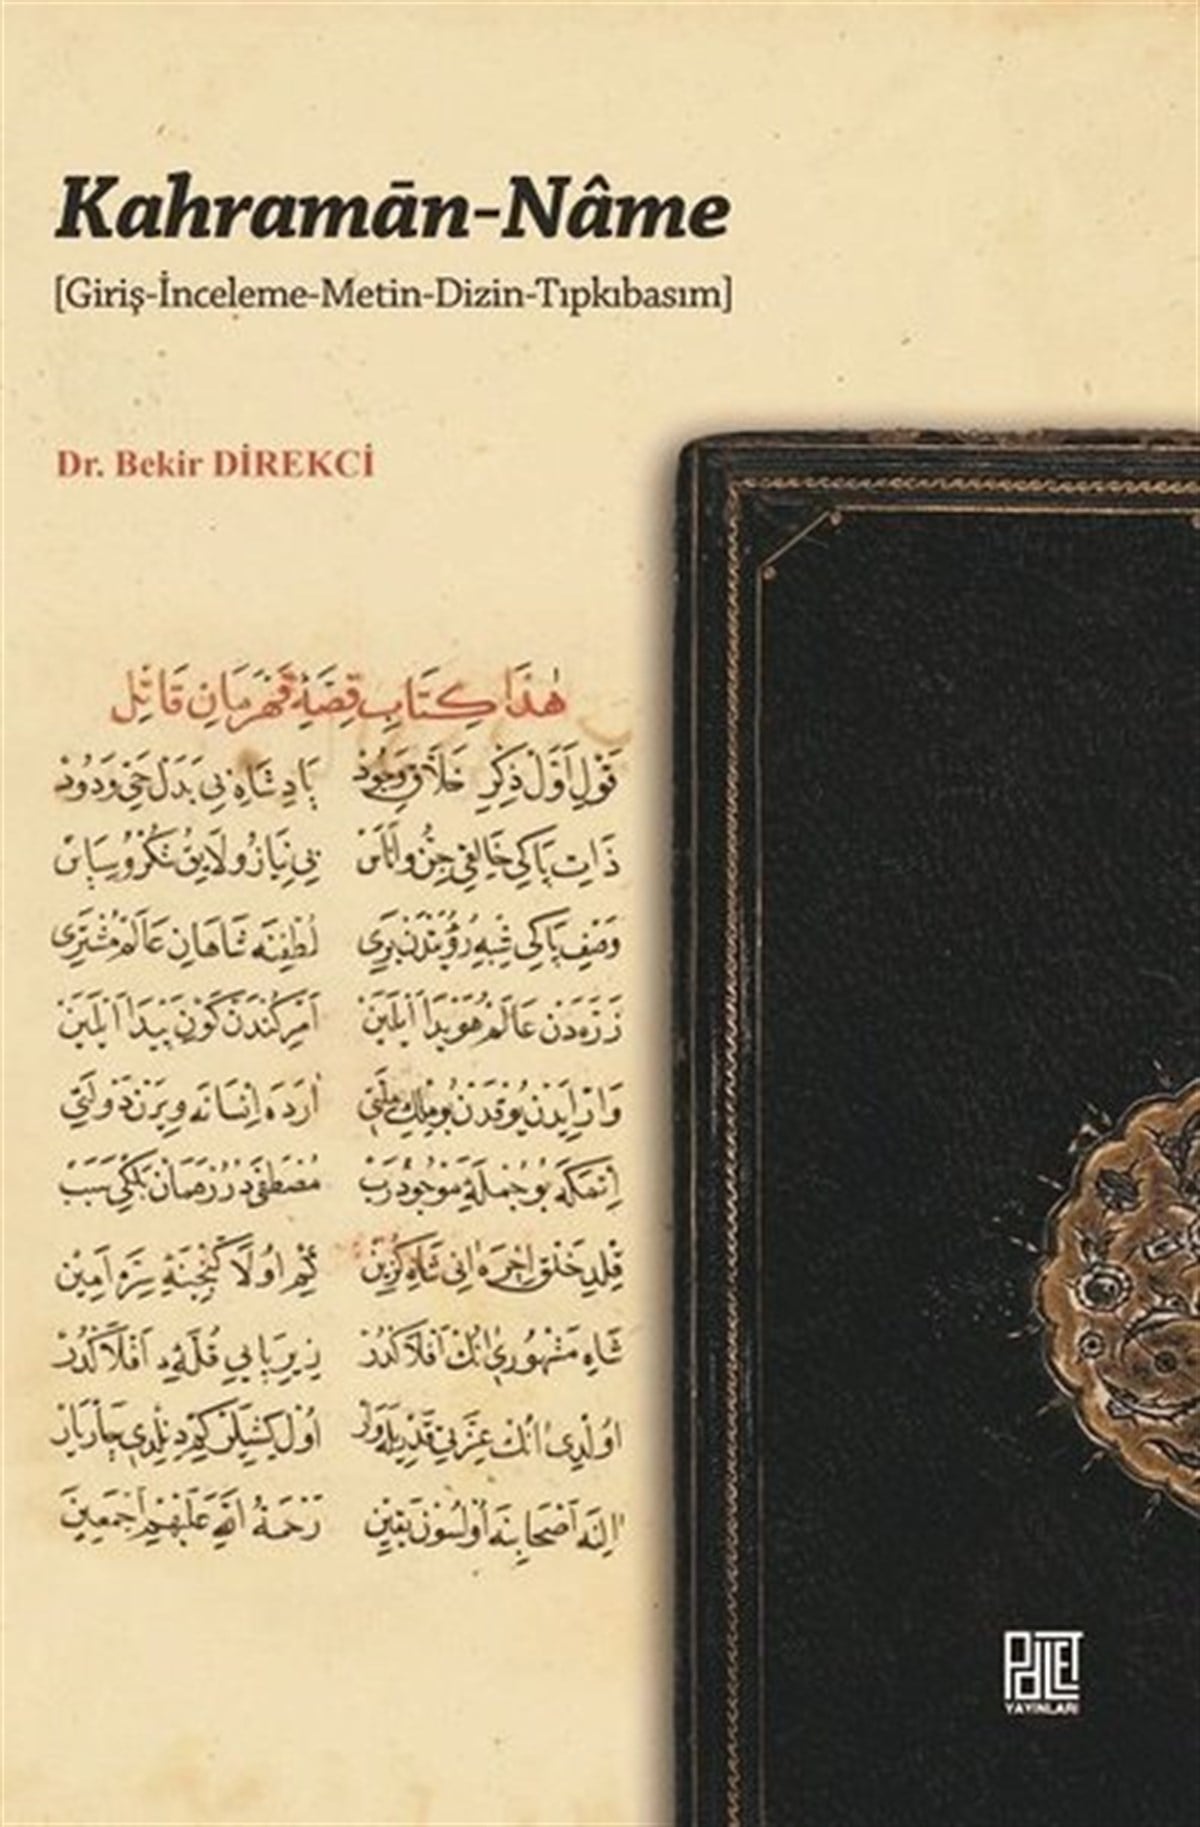 Kahramān-Nâme
[Giriş-İnceleme-Metin-Dizin-Tıpkıbasım]
Dr. Bekir DİREKCİ
هٰذَا كِتَابِ قِصَهٔ قَهْرَمَانِ قَاتِلِ
قَوْلِ اَوَّلْ ذِكْرِ خَلَّاقِ وُجُودْ پَادِشَاهِ بِى بَدَلْ حَىِّ وَدُودْ
ذَاتِ پَاكِى خَالِقِ جِنُّ وَ اُنَاسْ بِى نِيَازُ و لَايِقُ شُكْرُ و سِپَاسْ
وَصْفِ پَاكِى شِبْهِ رُؤْيَتْدَنْ بَرِى لُطْفِنَه شَاهَانِ عَالَمْ مُشْتَرِى
ذَرَّه دَنْ عَالَمْ هُوَيْدَا اَيْلَيَنْ اَمْرِ كُنْدَنْ كَوْنِ پَيْدَا اَيْلَيَنْ
وَارْ اِيدَنْ يُوقْدَنْ بُو مُلْكِ مِلَّتِى اَرَدَه اِنْسَانَه وِيرَنْ دَوْلَتِى
اِتْمَكَه بُو جُمْلَهٔ مَوْجُودْ رَبْ مُصْطَفٰى دُرْ زَهْمَانْ بَلْكِى سَبَبْ
قِلْدِ خَلْقِ اٰخِرَه اٰنِى شَاهِ كُزِينْ كِيم اُولَا كَنْجِينَهٔ سِرَّه اَمِينْ
شَاهِ مَنْشُورِى اٰنُكْ اَفْلَاكْدُرْ زِيرِ پَايِى قُلَّهٔ اَفْلَاكْدُرْ
اُولْدِى اٰنُكْ عِزَّتِى قَدْرِيلَه وَارْ اُولْ كِشِيلَرْ كِيمْ دِينِلْدِى چَارْ يَارْ
اٰلِنَه اَصْحَابِنَه اُولْسُونْ يَقِينْ رَحْمَةُ اللّٰهِ عَلَيْهِمْ اَجْمَعِينْ
PALET
YAYINLARI